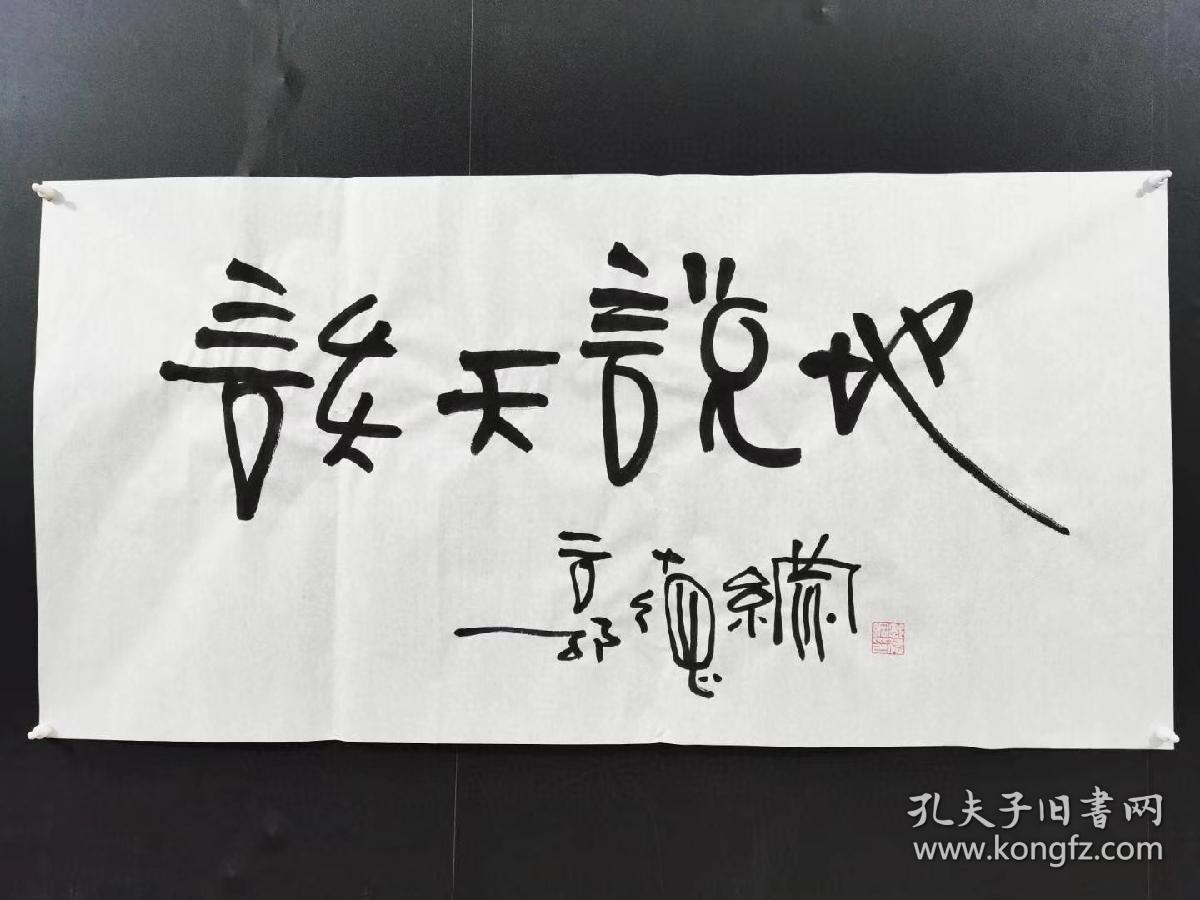 談天說地
郭德綱
孔夫子旧書网
www.kongfz.com